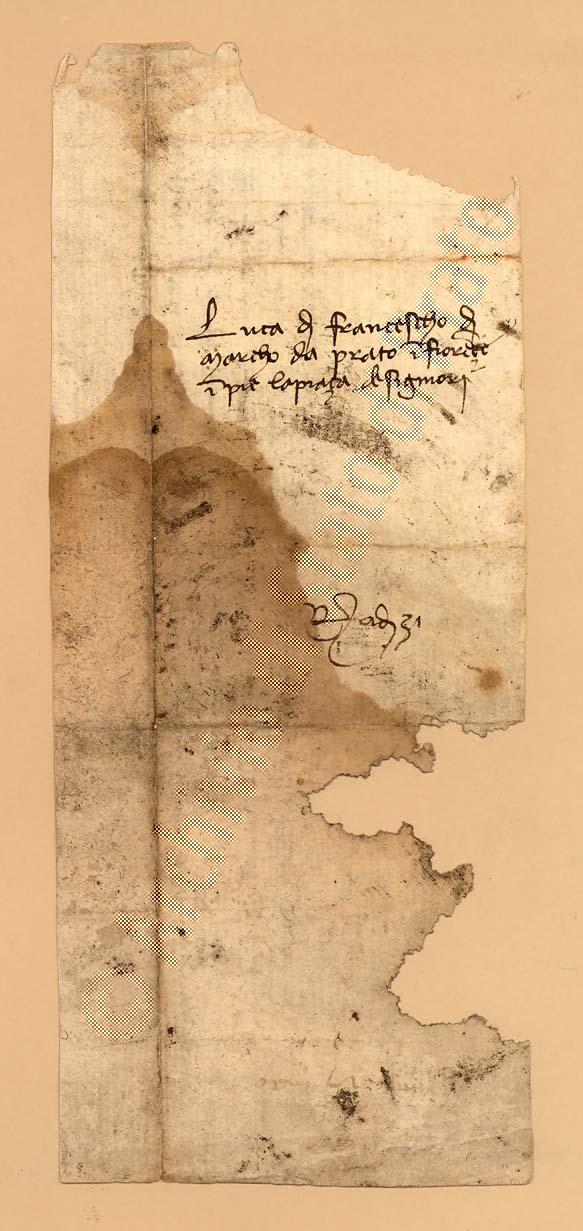 Luca d francescho d
Marcho da prato ī fiorēze
ī pie la piaza de signori
R adj 31
© Archivio di Stato di Prato